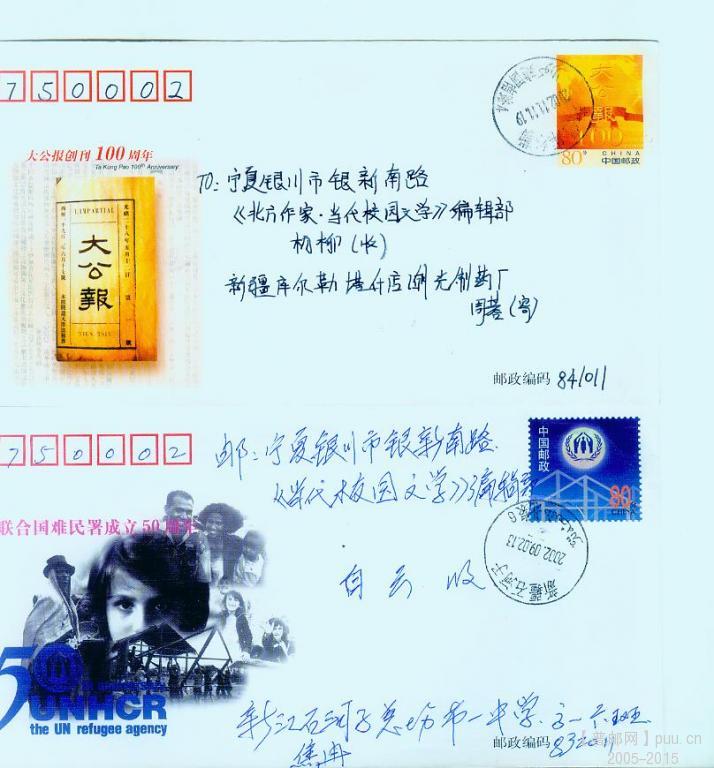 750002
大公报创刊100周年
Ta Kung Pao 100th Anniversary
L'IMPARTIAL
大公報
大公報
100
80分
CHINA
中国邮政
2002.11.11.19
TO：宁夏银川市银新南路
《北方作家·当代校园文学》编辑部
杨柳（收）
新疆库尔勒塔什店 光制药厂
周 （寄）
邮政编码 841011
750002
邮：宁夏银川市银新南路
《当代校园文学》编辑部
白云 收
中国邮政
80分
新疆石河子
2002.09.02.13
联合国难民署成立50周年
50
UNHCR
the UN refugee agency
新江石河子总场第一中学 高一六班
焦冉
邮政编码 832011
【普邮网】puu.cn
2005-2015